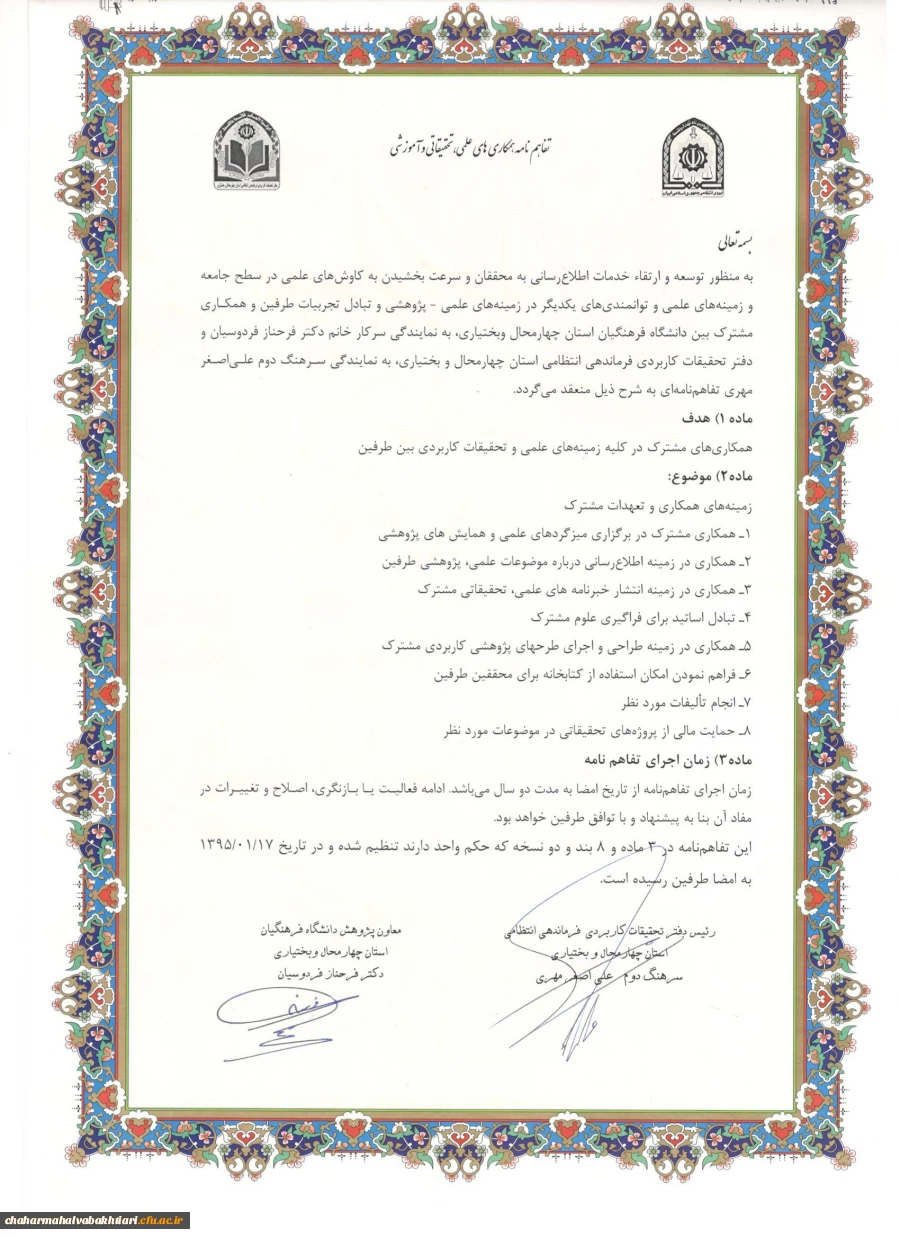 تفاهم نامه همکاری های علمی، تحقیقاتی و آموزشی
نیروی انتظامی جمهوری اسلامی ایران
بسمه تعالی
به منظور توسعه و ارتقاء خدمات اطلاع‌رسانی به محققان و سرعت بخشیدن به کاوش‌های علمی در سطح جامعه
و زمینه‌های علمی و توانمندی‌های یکدیگر در زمینه‌های علمی - پژوهشی و تبادل تجربیات طرفین و همکاری
مشترک بین دانشگاه فرهنگیان استان چهارمحال وبختیاری، به نمایندگی سرکار خانم دکتر فرحناز فردوسیان و
دفتر تحقیقات کاربردی فرماندهی انتظامی استان چهارمحال و بختیاری، به نمایندگی سرهنگ دوم علی‌اصغر
مهری تفاهم‌نامه‌ای به شرح ذیل منعقد می‌گردد.
ماده ۱) هدف
همکاری‌های مشترک در کلیه زمینه‌های علمی و تحقیقات کاربردی بین طرفین
ماده۲) موضوع:
زمینه‌های همکاری و تعهدات مشترک
۱ـ همکاری مشترک در برگزاری میزگردهای علمی و همایش های پژوهشی
۲ـ همکاری در زمینه اطلاع‌رسانی درباره موضوعات علمی، پژوهشی طرفین
۳ـ همکاری در زمینه انتشار خبرنامه های علمی، تحقیقاتی مشترک
۴ـ تبادل اساتید برای فراگیری علوم مشترک
۵ـ همکاری در زمینه طراحی و اجرای طرحهای پژوهشی کاربردی مشترک
۶ـ فراهم نمودن امکان استفاده از کتابخانه برای محققین طرفین
۷ـ انجام تألیفات مورد نظر
۸ـ حمایت مالی از پروژه‌های تحقیقاتی در موضوعات مورد نظر
ماده۳) زمان اجرای تفاهم نامه
زمان اجرای تفاهم‌نامه از تاریخ امضا به مدت دو سال می‌باشد. ادامه فعالیت یا بازنگری، اصلاح و تغییرات در
مفاد آن بنا به پیشنهاد و با توافق طرفین خواهد بود.
این تفاهم‌نامه در ۳ ماده و ۸ بند و دو نسخه که حکم واحد دارند تنظیم شده و در تاریخ ۱۳۹۵/۰۱/۱۷
به امضا طرفین رسیده است.
رئیس دفتر تحقیقات کاربردی فرماندهی انتظامی
استان چهارمحال و بختیاری
سرهنگ دوم علی اصغر مهری
معاون پژوهش دانشگاه فرهنگیان
استان چهارمحال وبختیاری
دکتر فرحناز فردوسیان
chaharmahalvabakhtiari.cfu.ac.ir